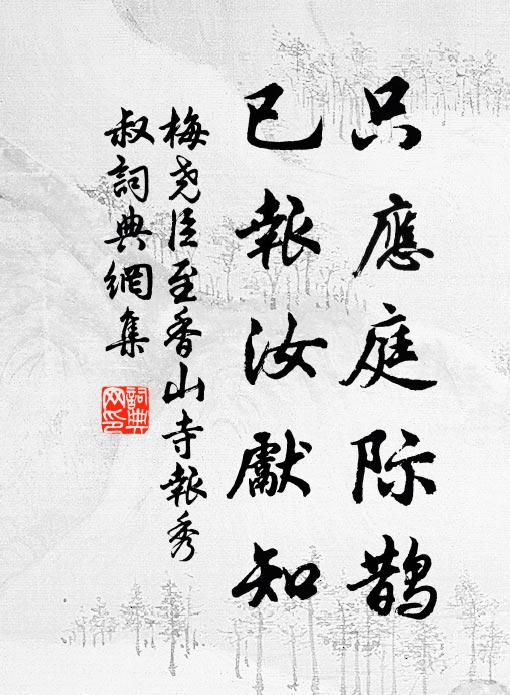 只應庭际鹊
已報汝獻知
梅尧臣至香山寺報秀
叔詞典網集
詞典网印